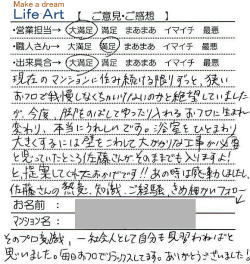 Make a dream
Life Art 【ご意見・ご感想】
・営業担当→ 大満足 満足 まあまあ イマイチ 最悪
・職人さん→ 大満足 満足 まあまあ イマイチ 最悪
・出来具合→ 大満足 満足 まあまあ イマイチ 最悪
現在のマンションに住み続ける限りずっと、狭い
おフロで我慢しなくちゃいけないのかと絶望していました
が、今度、脚をのばしてゆったり入れるおフロに生まれ
変わり、本当にうれしいです。浴室をひとまわり
大きくするには壁をこわして大がかりな工事が必要
と思っていたところ佐藤さんがそのままでも入りますよ!
と提案してくれたおかげです!! 次の時は感動しました。
佐藤さんの熱意、知識、ご経験、きめ細かいフォロー
お名前:
マンション名:
そのプロ意識、一社会人として自分も見習わねばと
思いました。毎日おフロでリラックスしてます。ありがとうございました!